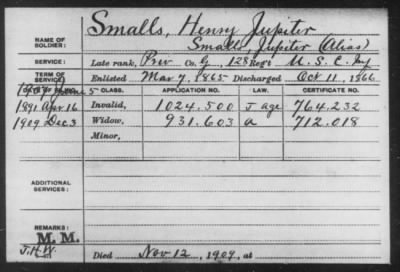 Smalls, Henry Jupiter
NAME OF SOLDIER: Smalls, Jupiter (Alias)
SERVICE: Late rank, Priv Co. G, 128 Reg't U. S. C. Inf
TERM OF SERVICE: Enlisted Mar 7, 1865 Discharged Oct 11, 1866
CLASS. APPLICATION NO. LAW. CERTIFICATE NO.
1891 Apr 16 Invalid, 1024.500 J age 764.232
1909 Dec 3 Widow, 931.603 a 712.018
Minor,
ADDITIONAL SERVICES:
REMARKS:
M. M.
J.H.W. Died Nov 12, 1909, at